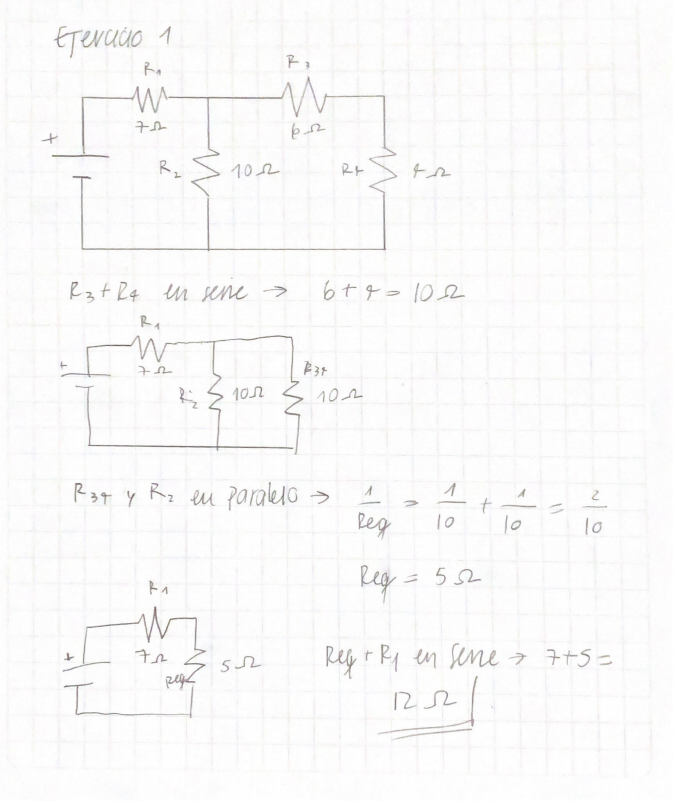 Ejercicio 1
R1
R3
7Ω
6Ω
+
R2
10Ω
R4
4Ω
R3+R4 en serie → 6+4=10Ω
R1
+
7Ω
R34
R2
10Ω
10Ω
R34 y R2 en paralelo → 1/Req = 1/10 + 1/10 = 2/10
Req = 5Ω
R1
+
7Ω
Req
5Ω
Req+R1 en serie → 7+5=
12Ω